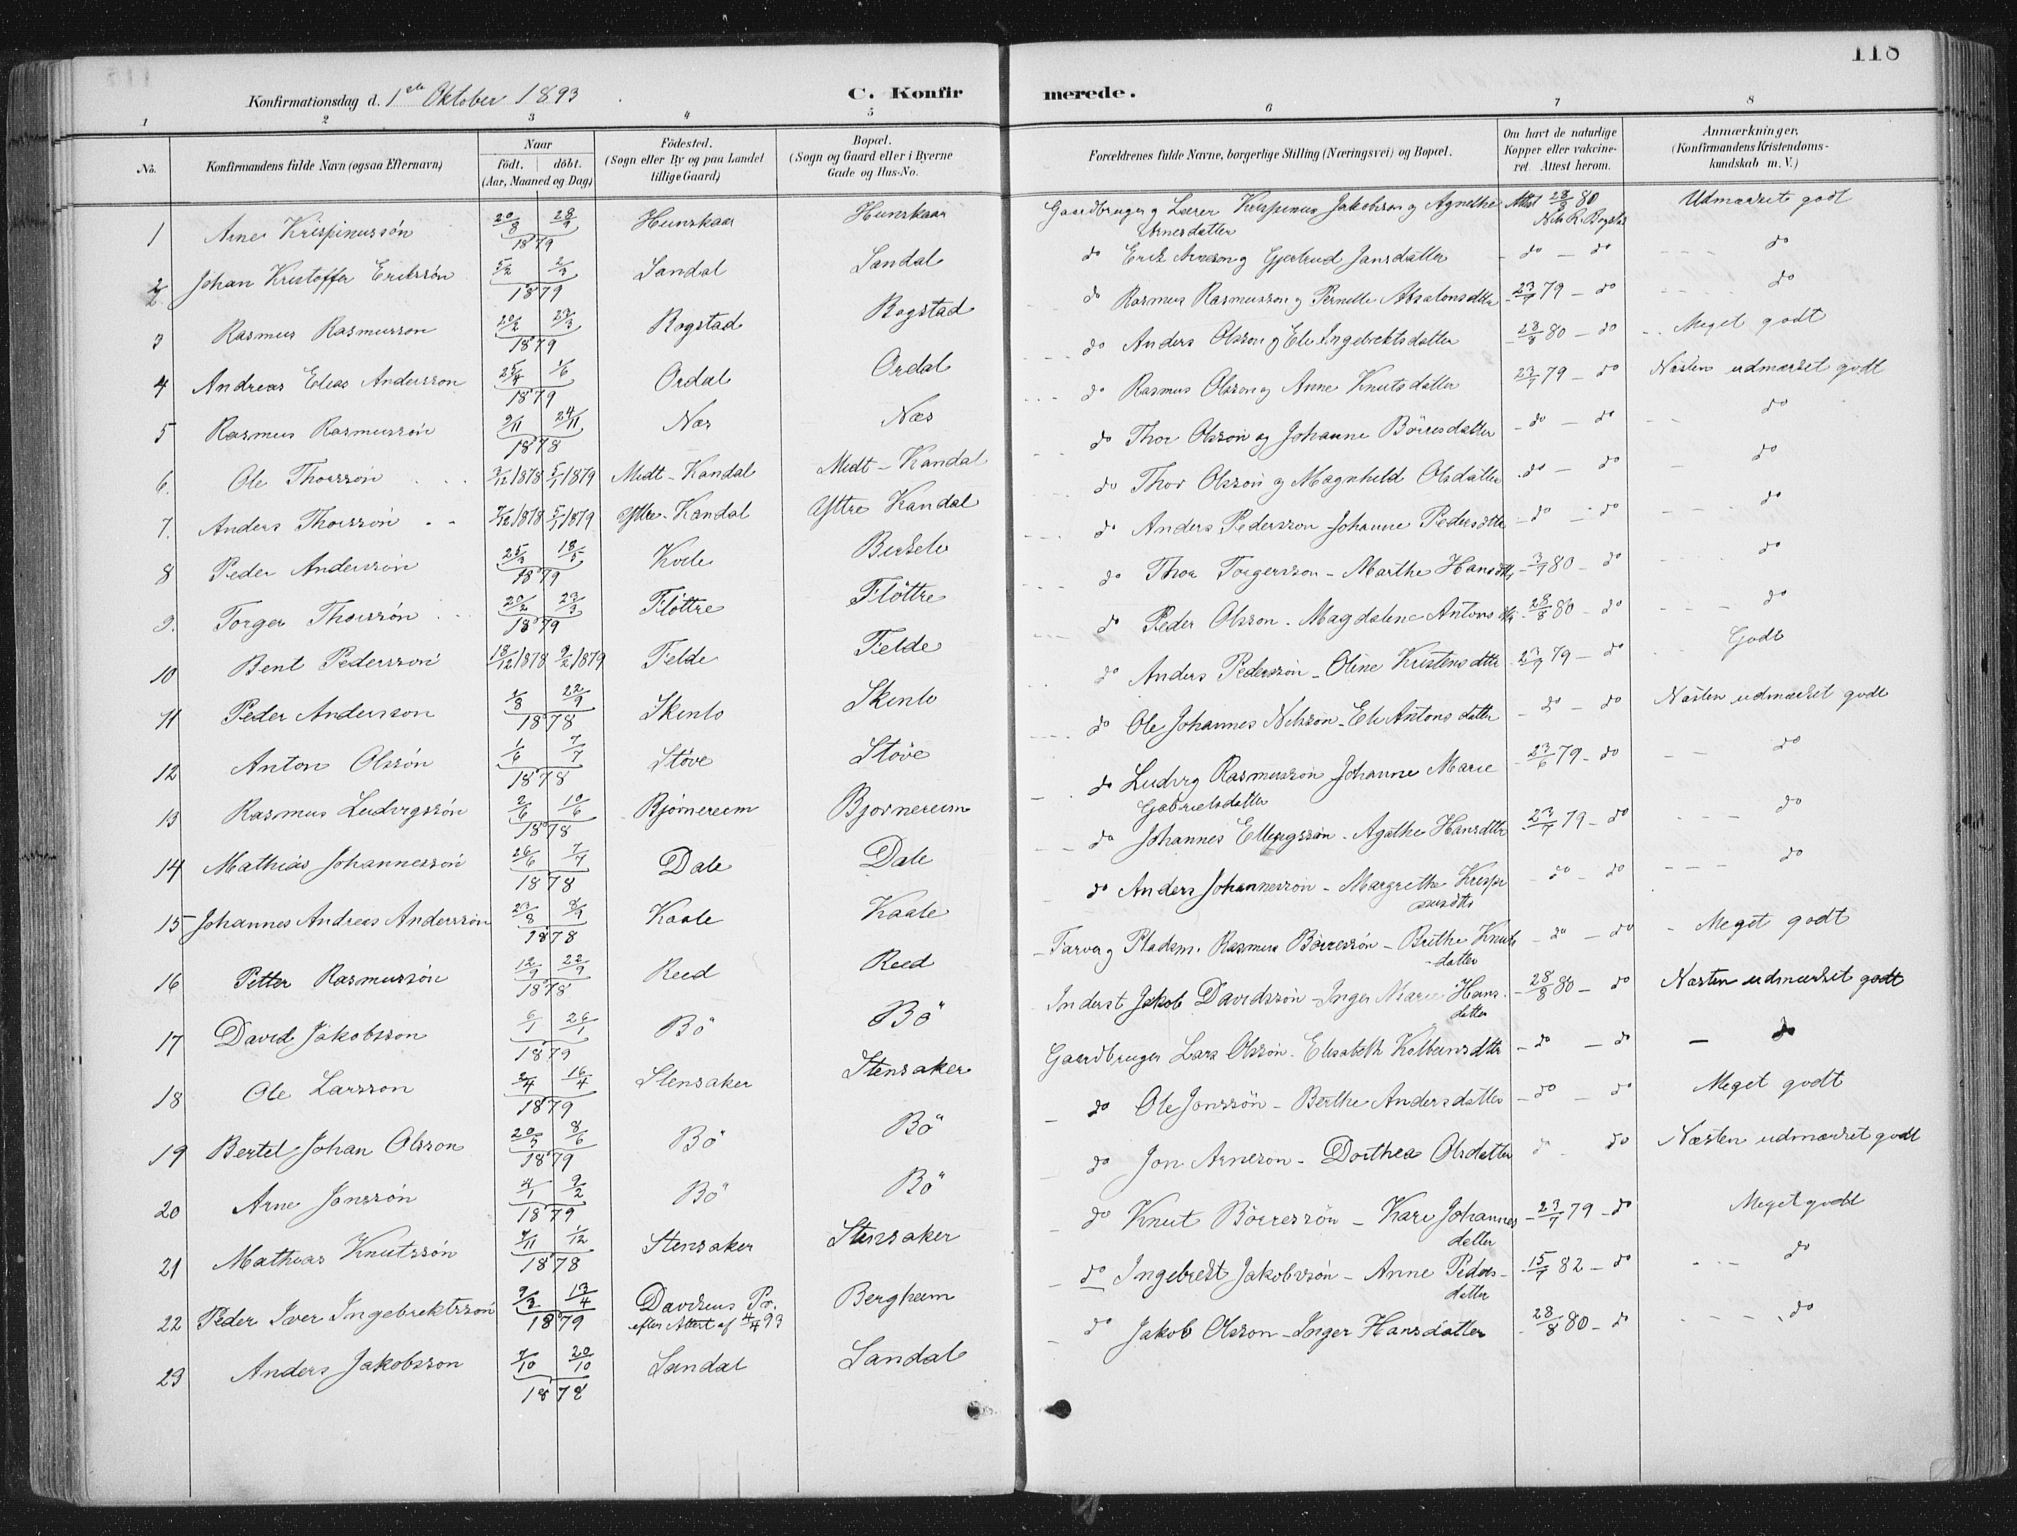 118
Konfirmationsdag d. 1ste Oktober 1893
C. Konfirmerede.
1 2 3 4 5 6 7 8
No. Konfirmandens fulde Navn (ogsaa Efternavn) Naar født. døbt. (Aar, Maaned og Dag) Fødested. (Sogn eller By og paa Landet tillige Gaard) Bopæl. (Sogn og Gaard eller i Byerne Gade og Hus-No. Forældrenes fulde Navne, borgerlige Stilling (Næringsvei) og Bopæl. Om havt de naturlige Kopper eller vakcineret Attest herom. Anmærkninger, (Konfirmandens Kristendomskundskab m. V.)
1 Arne Krispinussøn 20/8 28/9 1879 Hunskaar Hunskaar Gaardbruger og Lærer Krispinus Jakobson og Agnethe Arnesdatter Attest 28/8 80 Udmærket godt
2 Johan Kristoffer Eriksøn 5/2 2/3 1879 Sandal Sandal do Erik Arneson og Gjertrud Jansdatter do do do
3 Rasmus Rasmusson 20/2 23/3 1879 Bogstad Bogstad do Rasmus Rasmusson og Pernille Absalonsdtter 23/9 79 do do
4 Andreas Elias Andersson 25/4 1/6 1879 Ordal Ordal do Anders Olsson og Eli Ingebrektsdatter 28/8 80 do Meget godt
5 Rasmus Rasmussøn 9/11 24/11 1878 Nes Nes do Rasmus Olsson og Anne Knutsdatter 23/9 79 do Næsten udmærket godt
6. Ole Thorssøn 1878 5/1 1879 Midt-Kandal Midt-Kandal do Thor Olsson og Johanne Börresdatter do do do
7. Anders Thorssøn 1878 5/1 1879 Yttre-Kandal Yttre Kandal do Thor Olsson og Magnhild Olsdatter do do do
8 Peder Anderssøn 25/3 18/5 1879 Kvile do Anders Pedersson Johanne Pedersdtter do do do
9. Torger Thorssøn 20/2 23/3 1879 Fløttre Fløttre do Thor Torgersson - Marthe Hansdtr 80 do do
10 Bent Pedersson 18/12 1878 9/2 1879 Felde Felde do Peder Olsson. Magdalene Antons 28/8 80 do do
11 Peder Andersson 22/9 1878 Skinlo Skinlo do Anders Pederssøn - Oline Kristensdtter 23/9 79 do Godt
12 Anton Olssøn 1/6 7/7 1878 Støve Støve do Ole Johannes Nilsson - Eli Antonsdatter do do Næsten udmærket godt
13 Rasmus Ludvigssøn 2/6 10/6 1878 Bjørnereim Bjørnereim do Ludvig Rasmussøn Johanne Marie Gabrielsdatter 23/6 79 do do
14 Mathias Johannessøn 26/6 7/7 1878 Dale Dale do Johannes Ellingssøn. Agathe Hansdtter 23/7 79 do do
15 Johannes Andreas Anderssøn 23/8 8/9 1878 Kaale Kaale do Anders Johannessøn - Margrethe Krispinusdtr do do do
16 Petter Rasmussøn 12/9 22/9 1878 Reed Reed Rasmus Børressøn - Brithe Knutsdatter do do Meget godt
17 David Jakobsson 6/1 26/1 1879 Bö Bö Inderst Jakob Davidssøn - Inger Marie Hansdatter 28/8 80 do Næsten udmærket godt
18 Ole Larsson 3/4 16/4 1879 Stensaker Stensaker Gaardbruger Lars Olssøn. Elisabeth Kolbensdtter do do do
19 Bertel Johan Olsson 20/5 8/6 1879 Bö Bö do Ole Jonssøn - Berthe Andersdatter do do Meget godt
20 Arne Jonssøn 4/1 9/2 1879 Bö Bö do Jon Arneson - Dorthea Olsdatter do do Næsten udmærket godt
21 Mathias Knutssøn 1/12 1878 Stensaker Stensaker do Knut Børressøn - Kari Johannesdatter 23/7 79 do Meget godt
22 Peder Iver Ingebrektssøn 9/3 13/4 1879 Davikens Pr. efter Attest af 4/4 93 Bergheim do Ingebrikt Jakobssøn - Anne Pedersdatter 15/7 82 do do
23 Anders Jakobsson 20/10 1878 Sandal Sandal do Jakob Olsson - Inger Hansdatter 28/8 80 do do